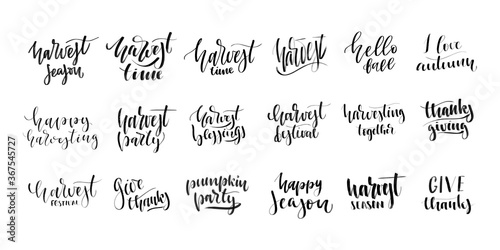 harvest
season
harvest
time
harvest
time
harvest
hello
fall
I love
autumn
happy
harvesting
harvest
party
harvest
blessings
harvest
festival
harvesting
together
thanks
giving
harvest
FESTIVAL
give
thanks
pumpkin
party
happy
season
harvest
SEASON
GIVE
thanks
Adobe Stock | #367545727